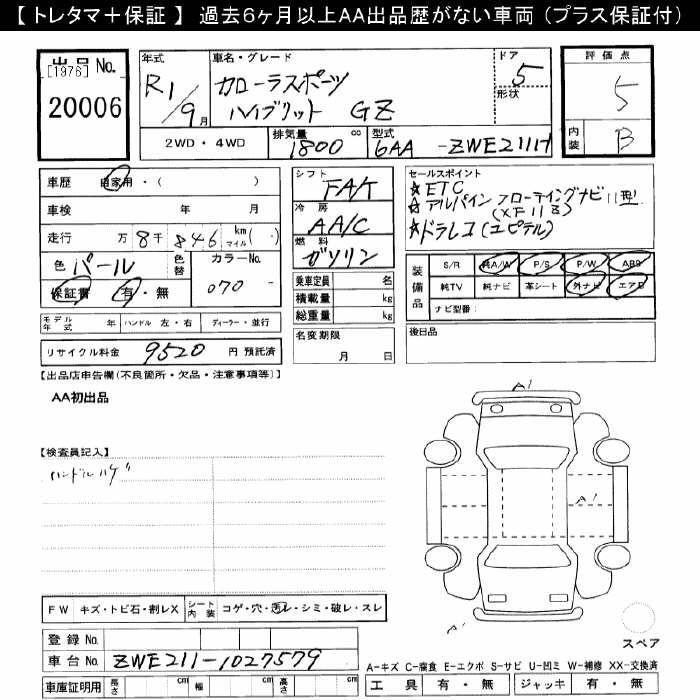 【 トレタマ＋保証 】 過去6ヶ月以上AA出品歴がない車両 (プラス保証付)
出品 No.
[1976]
20006
年式
R1/9月
車名・グレード
カローラスポーツ
ハイブリット GZ
ドア
5
形状
評価点
5
内装
B
2WD・4WD
排気量
1800 cc
型式
6AA -ZWE211H
車歴 自家用・( )
車検 年 月
走行 万 8千 846 km マイル( )
色 パール
色替
カラーNo.
070 -
保証書 有・無
モデル年式 年 ハンドル 左・右 ディーラー・並行
リサイクル料金 9520 円 預託済
シフト
FA/T
冷房
AA/C
燃料
ガソリン
乗車定員 名
積載量 kg
総重量 kg
名変期限
月 日
セールスポイント
☆ETC
☆アルパイン フローティングナビ11型
(XF11Z)
☆ドラレコ(ユピテル)
装備品
S/R 純A/W P/S P/W ABS
純TV 純ナビ 革シート 外ナビ エアB
ナビ型番:
後日品
【出品店申告欄(不良箇所・欠品・注意事項等)】
AA初出品
【検査員記入】
ハンドルハゲ
A1
A1
A1
スペア
FW キズ・トビ石・割レX
シート内装 コゲ・穴・汚レ・シミ・破レ・スレ
登録 No.
車台 No. ZWE211-1027579
車庫証明用 長さ cm 幅 cm 高さ cm
A-キズ C-腐食 E-エクボ S-サビ U-凹ミ W-補修 XX-交換済
工具 有・無 ジャッキ 有・無